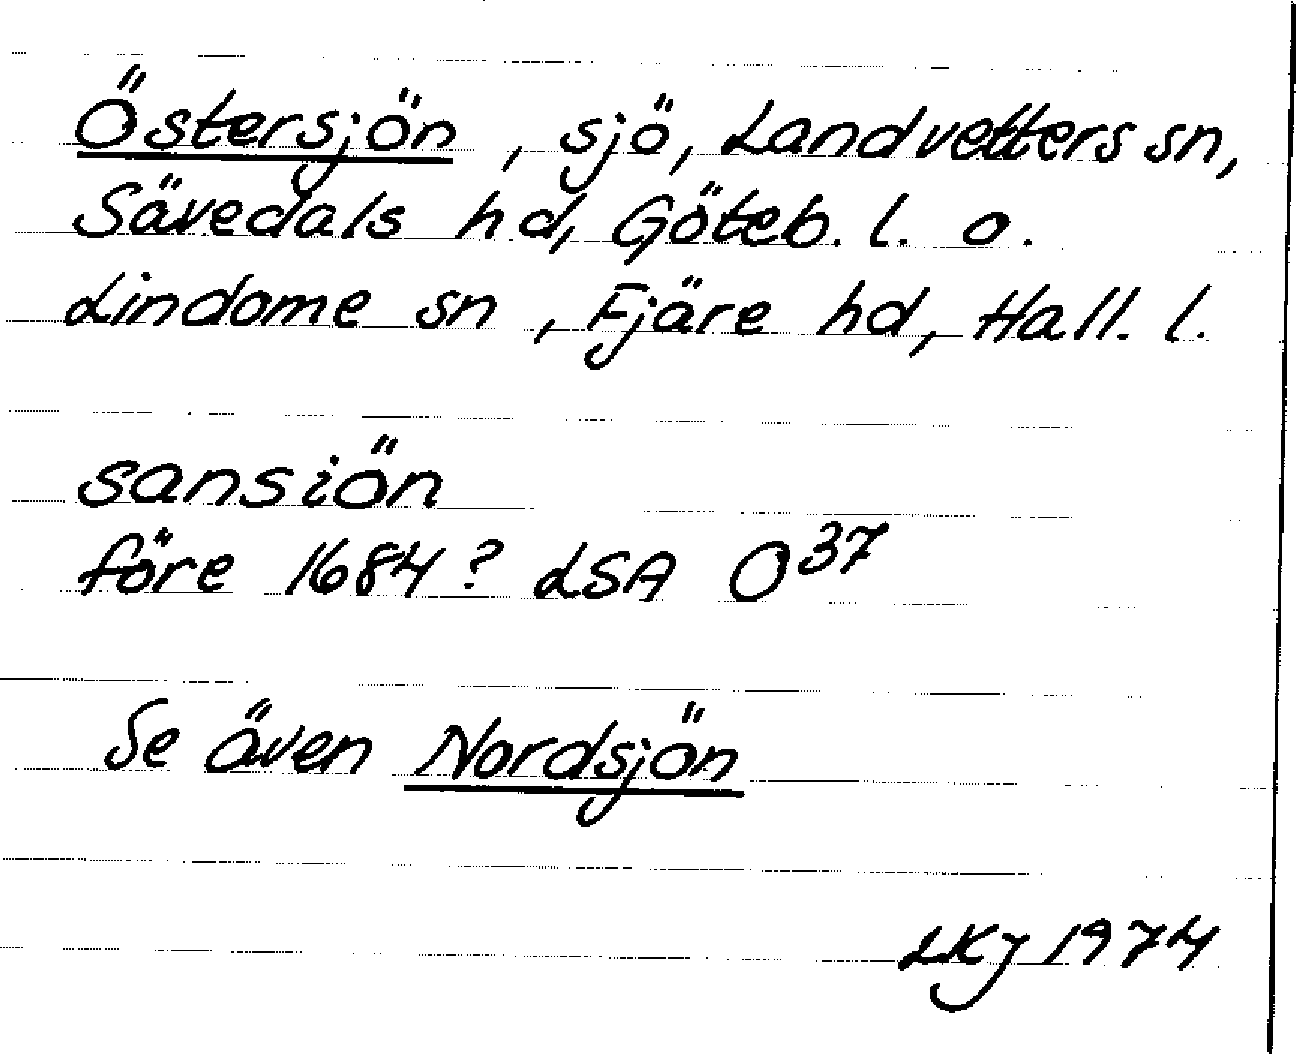 Östersjön, sjö, Landvetters sn,
Sävedals hd, Göteb. l. o.
Lindome sn, Fjäre hd, Hall. l.
sansiön
före 1684? LSA O³⁷
Se även Nordsjön
LKJ 1974